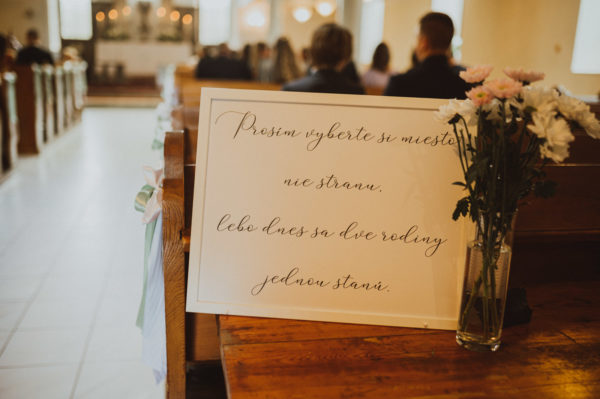 Prosím vyberte si miesto
nie stranu,
lebo dnes sa dve rodiny
jednou stanú.